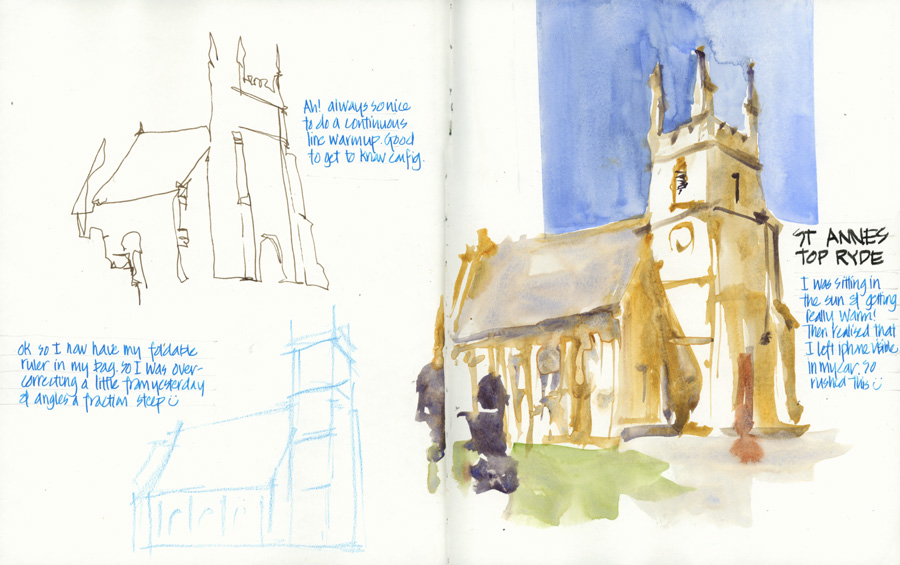 Ah! always so nice
to do a continuous
line warmup. Good
to get to know config.
ok so I now have my foldable
ruler in my bag. so I was over-
correcting a little from yesterday
& angles a fraction steep
ST ANNES
TOP RYDE
I was sitting in
the sun & getting
really warm!
Then realised that
I left iphone
in my car, so
rushed this